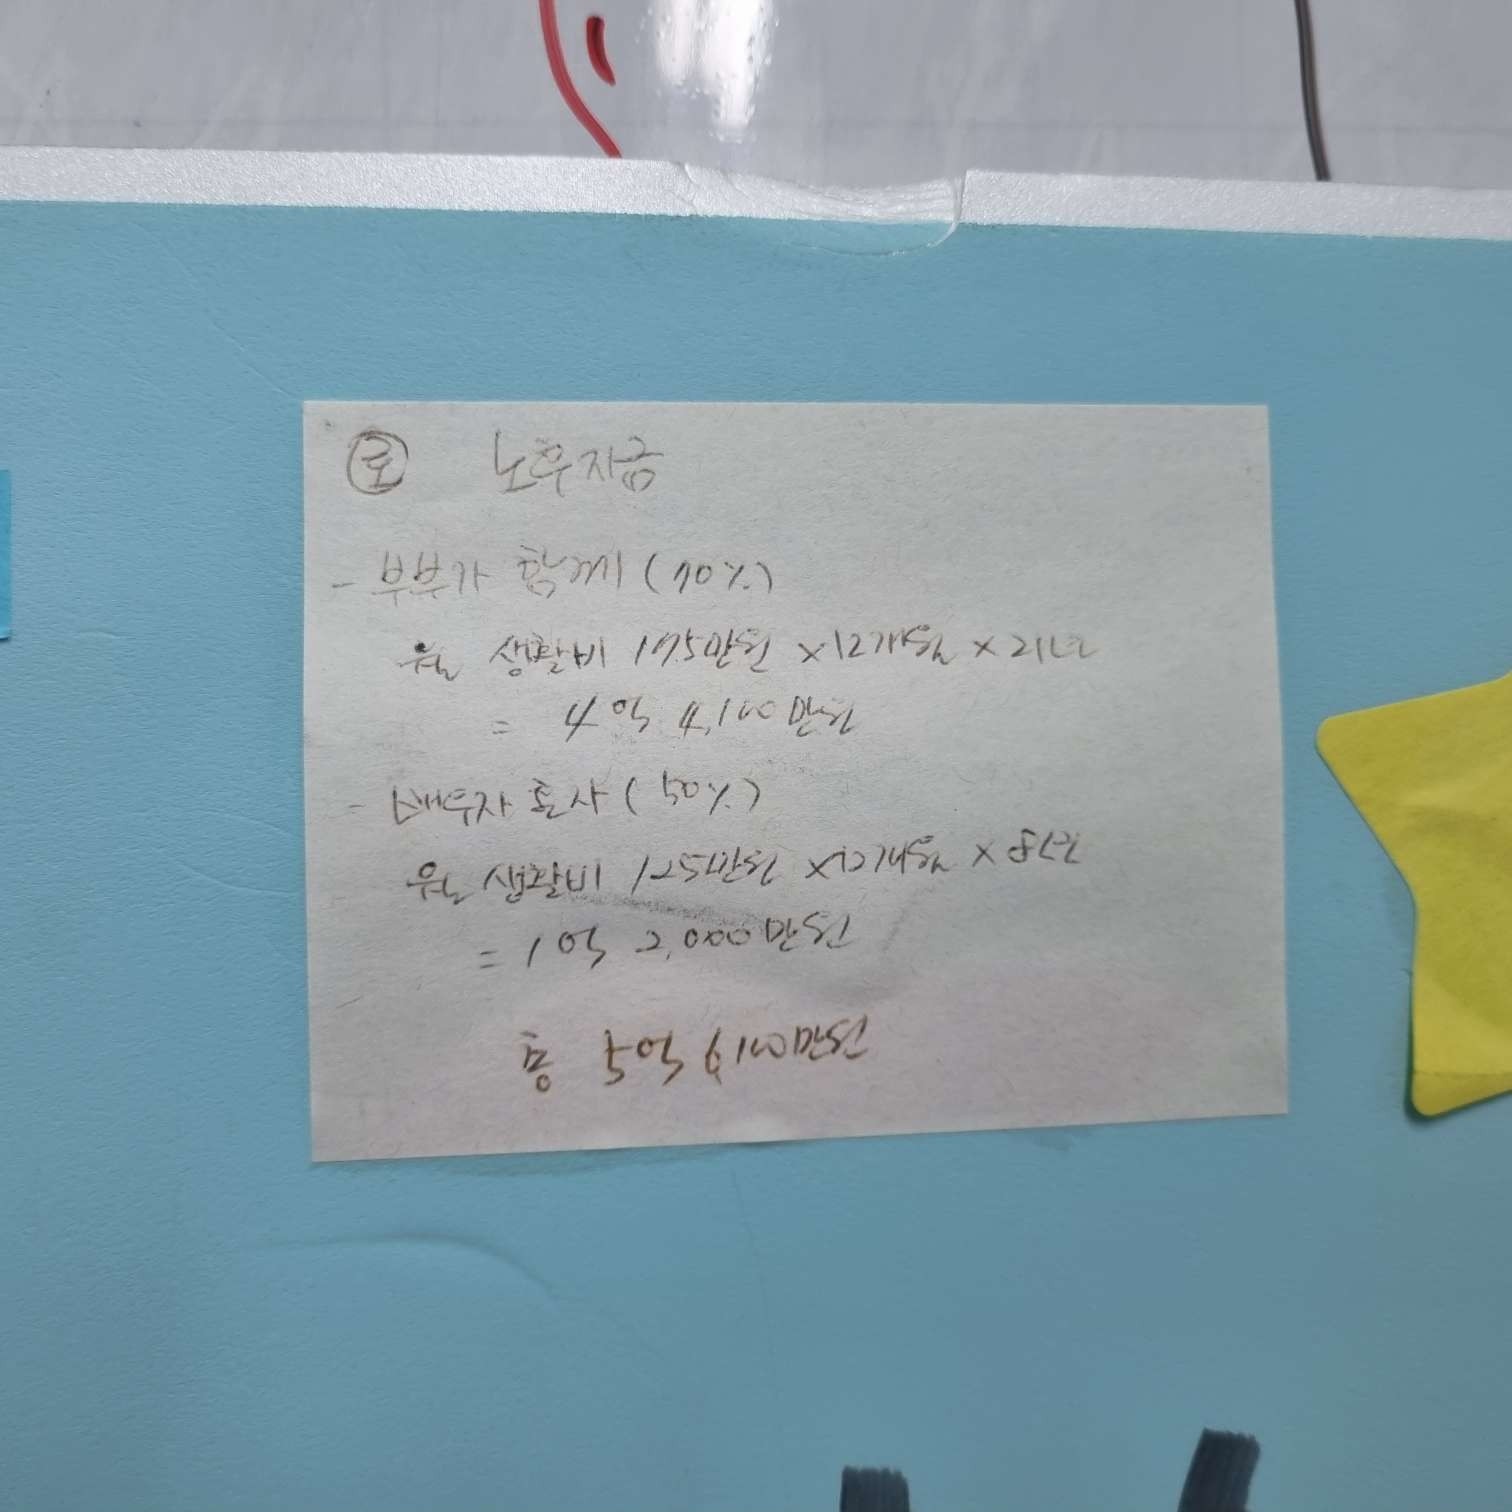 ㉡ 노후자금
- 부부가 함께 (70%)
월 생활비 175만원 ×12개월 × 21년
= 4억 4,100만원
- 배우자 혼자 (50%)
월 생활비 125만원 ×12개월 × 8년
= 1억 2,000만원
총 5억 6,100만원